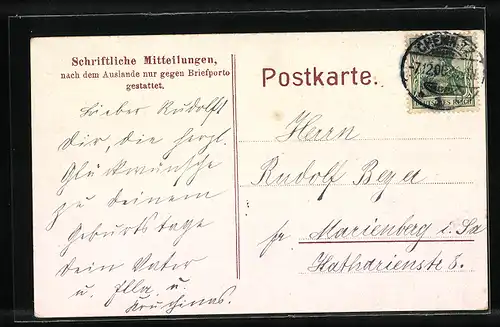 Schriftliche Mitteilungen,
nach dem Auslande nur gegen Briefporto
gestattet.
Postkarte.
Lieber Rudolf!
Dir, die herzl.
Glückwünsche
zu deinem
Geburtstage
dein Vater
u. Ella u.
Herrn
Rudolf Beyer
Marienberg i. Sa
Katharienstr 8.
CHEMNITZ